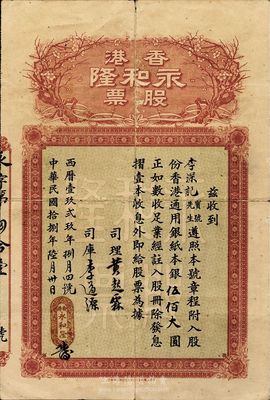 香港
永和隆
股票
茲收到
李深記寶號先生遵照本號章程附入股
份香港通用銀紙本銀伍佰大圓
正如數收足業經註入股冊除發息
摺壹本收息外即給股票為據
司理黃超霖
司庫李通源
西曆壹玖弍玖年捌月四號
中華民國拾捌年陸月卅日
永字第
號